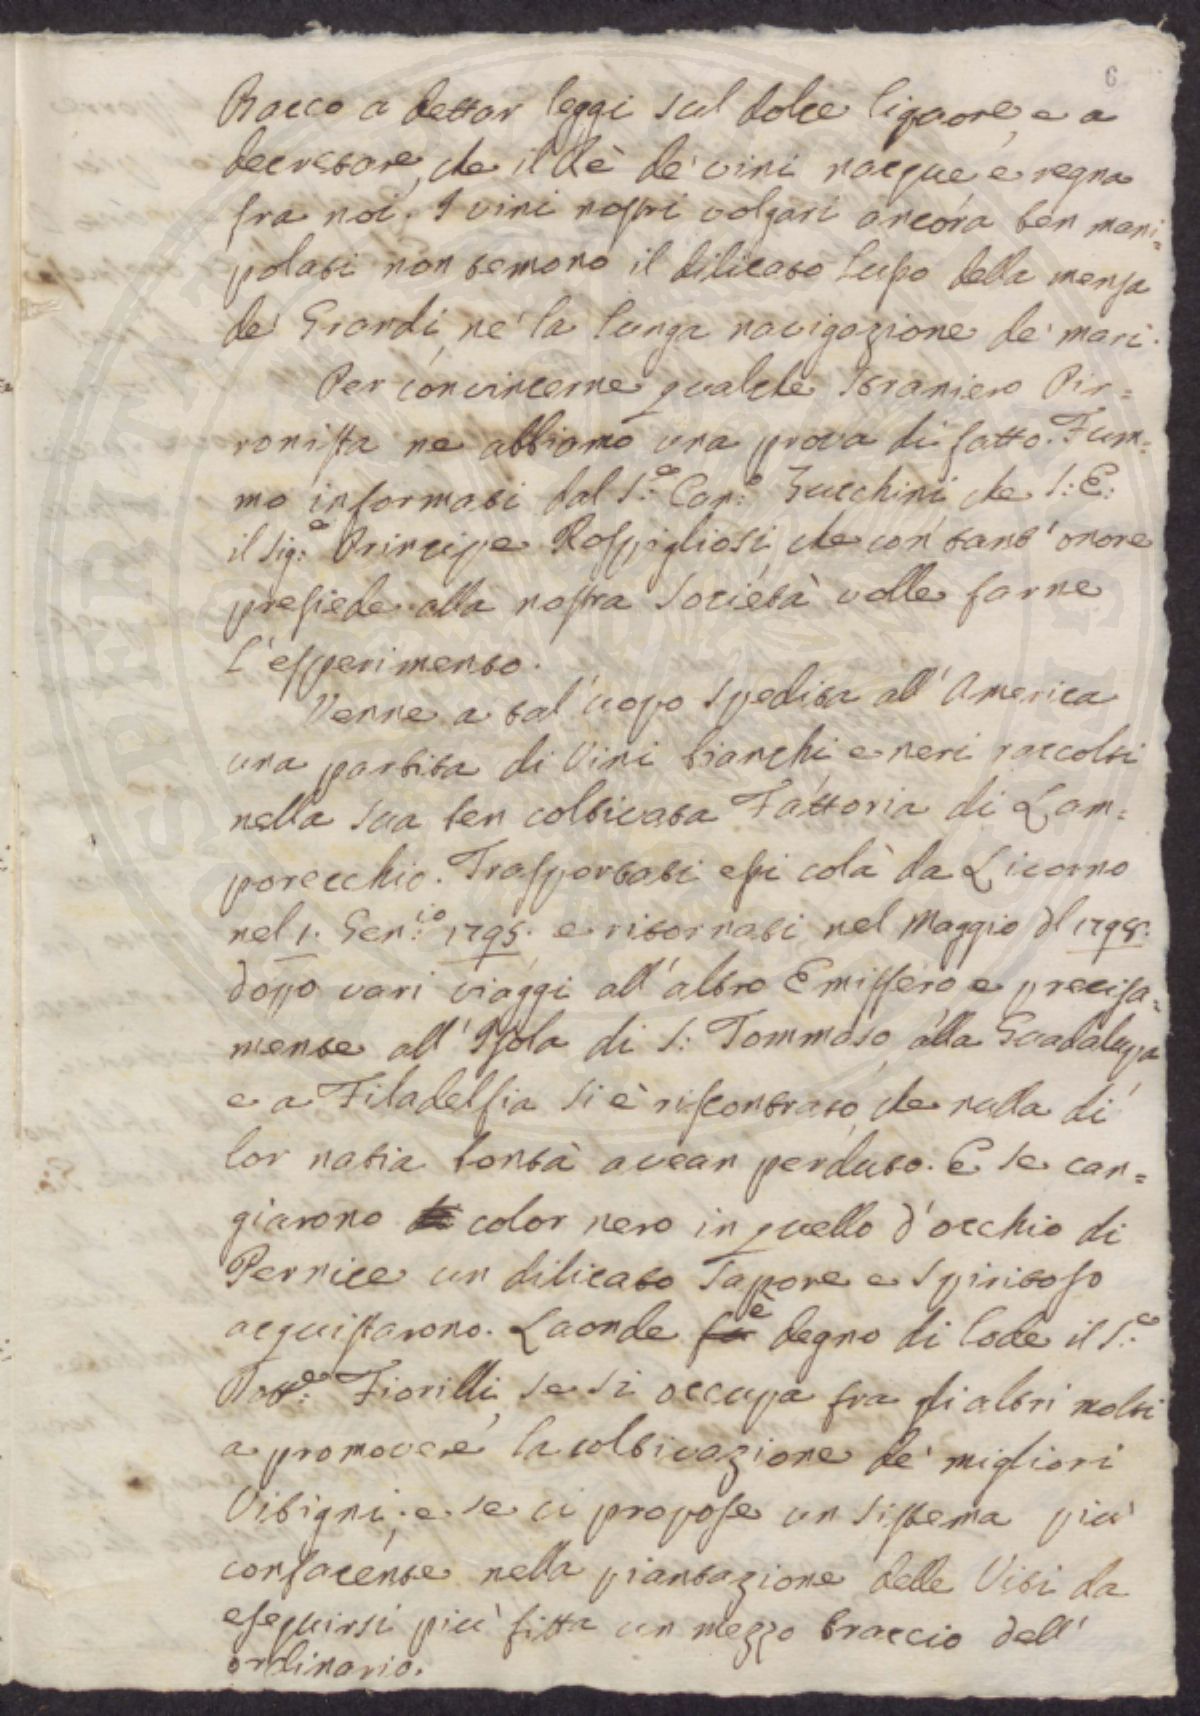 6
Bacco a dettar leggi sul dolce liquore, e a
decretare, che il Rè de' vini nacque e regna
fra noi. I vini nostri volgari ancora ben mani=
polati non temono il dilicato lusso della mensa
de' Grandi, ne' la lunga navigazione de' mari.
Per convincerne qualche straniero Pir=
ronista ne abbiamo una prova di fatto. Fum=
mo informati dal S.e Can.o Zucchini che S: E:
il Sig.e Principe Rospigliosi, che con tant' onore
presiede alla nostra Società volle farne
l'esperimento.
Venne a tal uopo spedita all' America
una partita di Vini bianchi e neri raccolti
nella sua ben coltivata Fattoria di Lam=
porecchio. Trasportati essi colà da Livorno
nel 1. Gen.io 1795. e ritornati nel Maggio dl 1798.
doppo vari viaggi all' altro Emissero e precisa=
mente all' Isola di S: Tommaso, alla Guadalupa
e a Filadelfia si è riscontrato, che nulla di
lor natia bontà avean perduto. E se can=
giarono color nero in quello d'occhio di
Pernice un dilicato sapore e spiritoso
acquistarono. Laonde è degno di lode il S.e
Dott.e Fiorilli, se si occupa fra gli altri molti
a promovere la coltivazione de' migliori
Vitigni; e se ci propose un sistema più
confacente nella piantazione delle Viti da
eseguirsi più fitta un mezzo braccio dell'
ordinario.